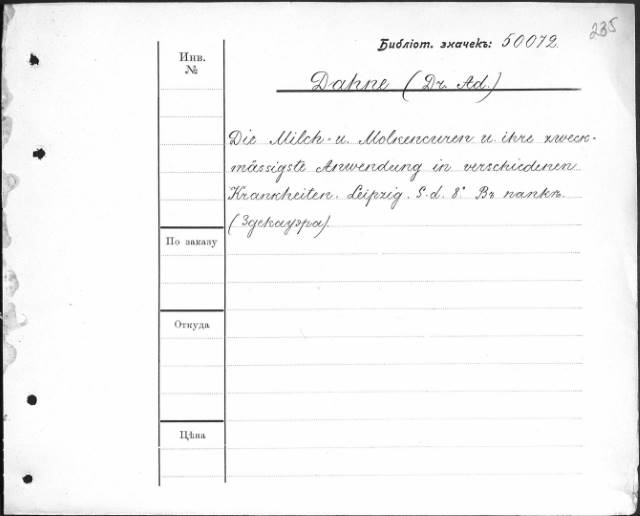 235
Библіот. значекъ: 50072.
Инв.
№
Dahne (Dr. Ad.)
Die Milch- u. Molkencuren u. ihre zweck-
mässigste Anwendung in verschiedenen
Krankheiten. Leipzig. S. d. 8° Въ папкѣ.
(Здекауэра).
По заказу
Откуда
Цѣна